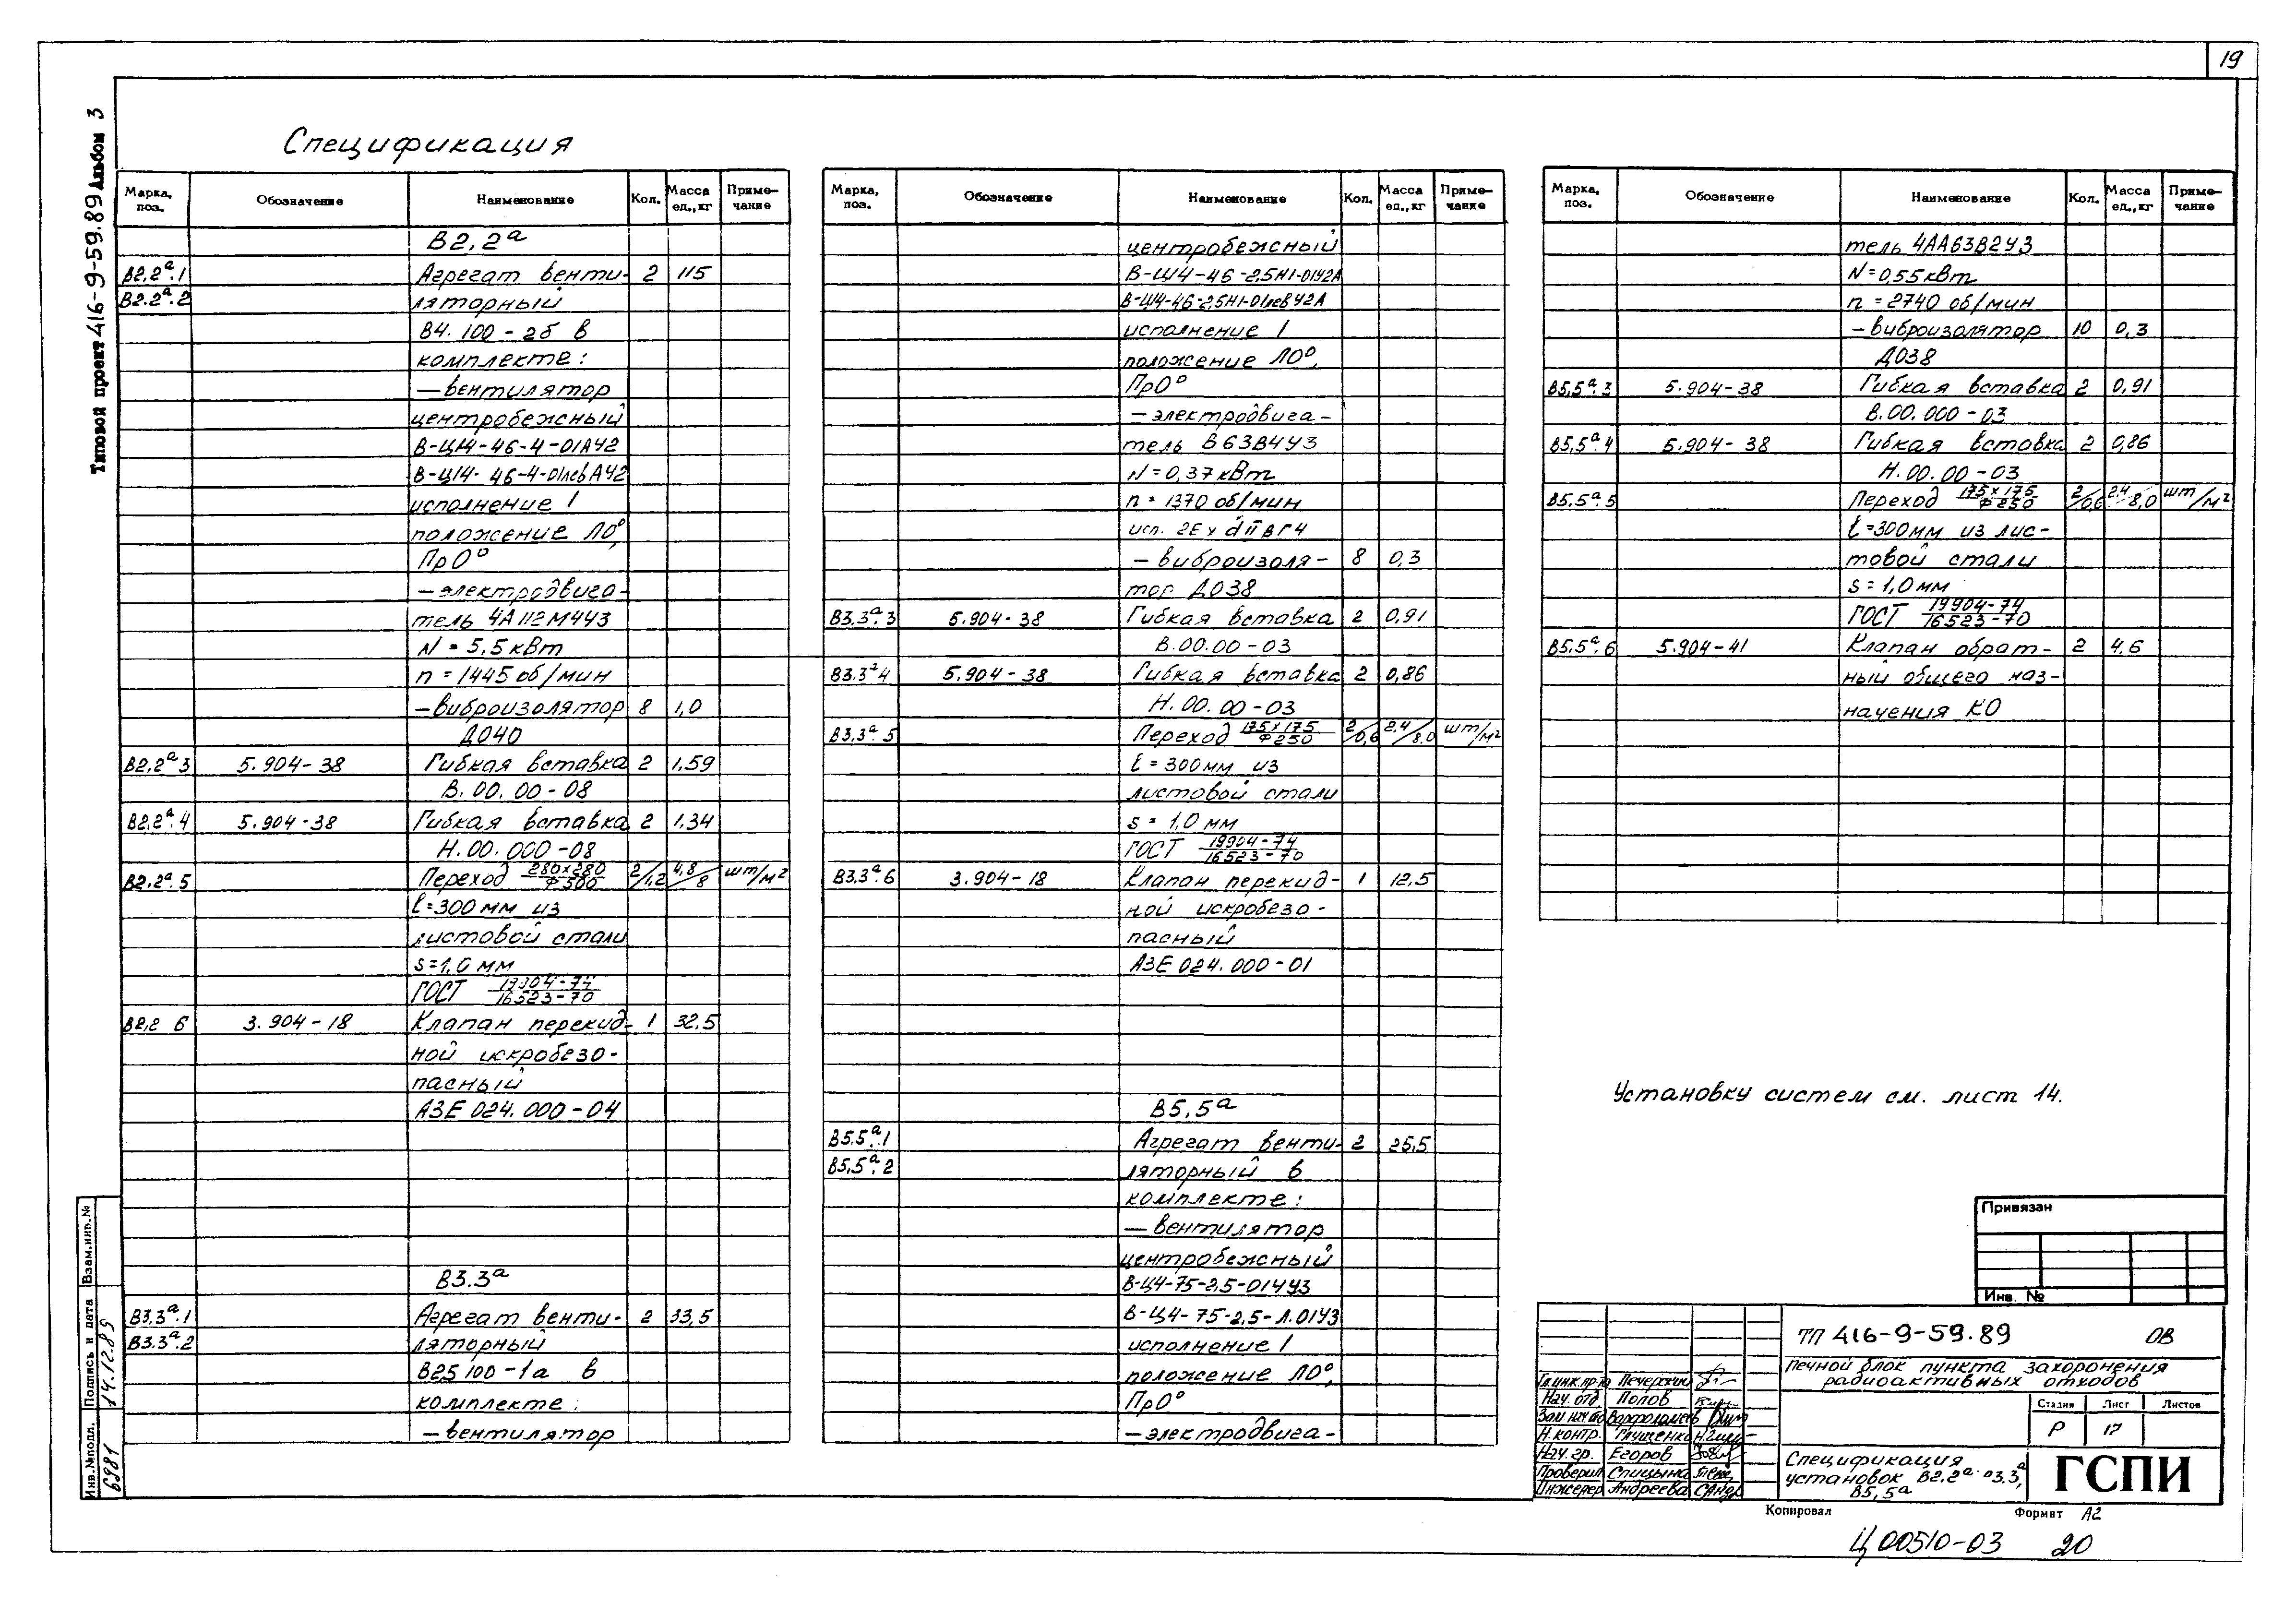 19
Типовой проект 416-9-59.89 Альбом 3
Спецификация
Марка, поз. Обозначение Наименование Кол. Масса ед., кг Приме-чание
В2,2а
В2,2а.1 Агрегат венти- 2 115
В2.2а.2 ляторный
В4.100-2б в
комплекте:
—вентилятор
центробежный
В-Ц14-46-4-01АУ2
В-Ц14-46-4-01левАУ2
исполнение 1
положение Л0°,
Пр0°
—электродвига-
тель 4А112М4У3
N = 5,5 кВт
n = 1445 об/мин
—виброизолятор 8 1,0
Д040
В2,2а 3 5.904-38 Гибкая вставка 2 1,59
В.00.00-08
В2,2а.4 5.904-38 Гибкая вставка 2 1,34
Н.00.000-08
В2,2а.5 Переход 280х280/Ф500 2/1,2 4,8/8 шт/м²
ℓ=300мм из
листовой стали
s=1,0 мм
ГОСТ 19904-74/16523-70
В2,2 6 3.904-18 Клапан перекид- 1 32,5
ной искробезо-
пасный
АЗЕ 024.000-04
В3.3а
В3.3а.1 Агрегат венти- 2 33,5
В3.3а.2 ляторный
В25100-1а в
комплекте:
—вентилятор
Марка, поз. Обозначение Наименование Кол. Масса ед., кг Приме-чание
центробежный
В-Ц14-46-2,5Н1-01У2А
В-Ц14-46-2,5Н1-01левУ2А
исполнение 1
положение Л0°,
Пр0°
—электродвига-
тель В63В4У3
N = 0,37 кВт
n = 1370 об/мин
исп. 2Ех d II В Г4
—виброизоля- 8 0,3
тор Д038
В3,3а.3 5.904-38 Гибкая вставка 2 0,91
В.00.00-03
В3.3а4 5.904-38 Гибкая вставка 2 0,86
Н.00.00-03
В3,3а.5 Переход 175х175/Ф250 2/0,6 2,4/8,0 шт/м²
ℓ = 300мм из
листовой стали
s = 1,0 мм
ГОСТ 19904-74/16523-70
В3,3а.6 3.904-18 Клапан перекид- 1 12,5
ной искробезо-
пасный
АЗЕ 024.000-01
В5,5а
В5.5а.1 Агрегат венти- 2 25,5
В5,5а.2 ляторный в
комплекте:
—вентилятор
центробежный
В-Ц4-75-2,5-01УУ3
В-Ц4-75-2,5-Л.01У3
исполнение 1
положение Л0°,
Пр0°
—электродвига-
Марка, поз. Обозначение Наименование Кол. Масса ед., кг Приме-чание
тель 4АА63В2У3
N = 0,55 кВт
n = 2740 об/мин
—виброизолятор 10 0,3
Д038
В5,5а.3 5.904-38 Гибкая вставка 2 0,91
В.00.000-03
В5,5а.4 5.904-38 Гибкая вставка 2 0,86
Н.00.00-03
В5,5а.5 Переход 175х175/Ф250 2/0,6 2,4/8,0 шт/м²
ℓ=300мм из лис-
товой стали
s = 1,0 мм
ГОСТ 19904-74/16523-70
В5,5а.6 5.904-41 Клапан обрат- 2 4,6
ный общего наз-
начения КО
Установку систем см. лист 14.
Привязан
Инв. №
ТП 416-9-59.89 ОВ
Печной блок пункта захоронения
радиоактивных отходов
Гл.инж.пр-та Печерский
Нач. отд Попов
Зам нач отд Варфоламеев
Н.контр. Глущенко
Нач. гр. Егоров
Проверил Спицына
Инженер Андреева
Стадия Лист Листов
Р 17
Спецификация
установок В2,2а, В3.3а,
В5,5а
ГСПИ
Копировал Формат А2
Ц00510-03 20
Взам.инв.№
Подпись и дата 14.12.89
Инв.№подл. 6981